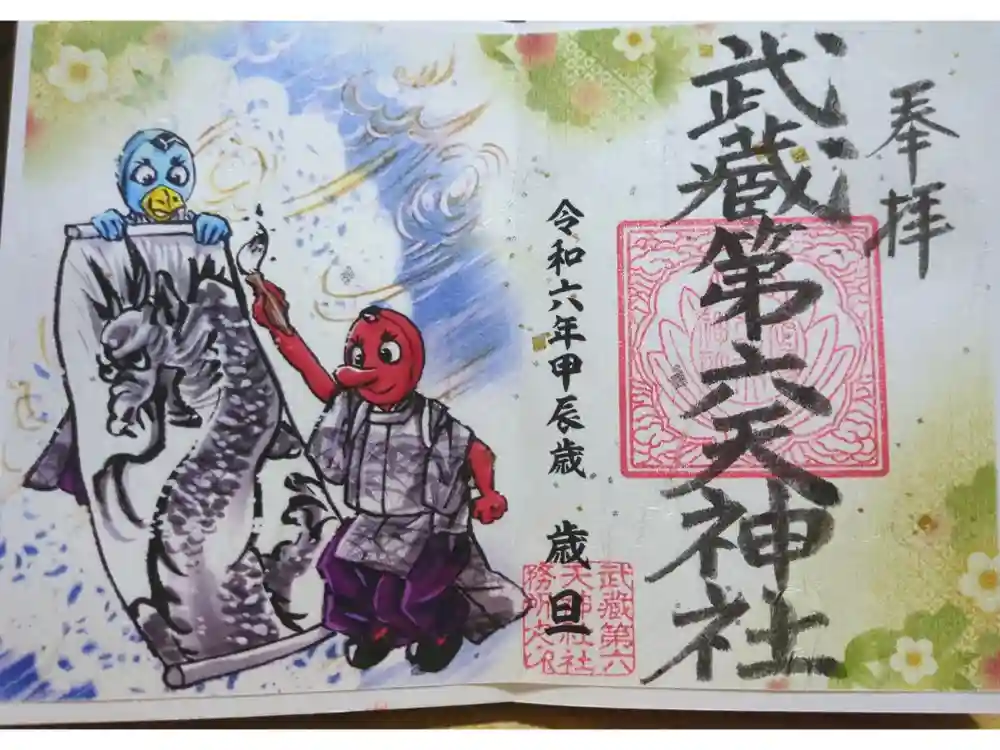 奉拝
武蔵第六天神社
令和六年甲辰歳 歳旦
武蔵第六
天神社社
務所之印